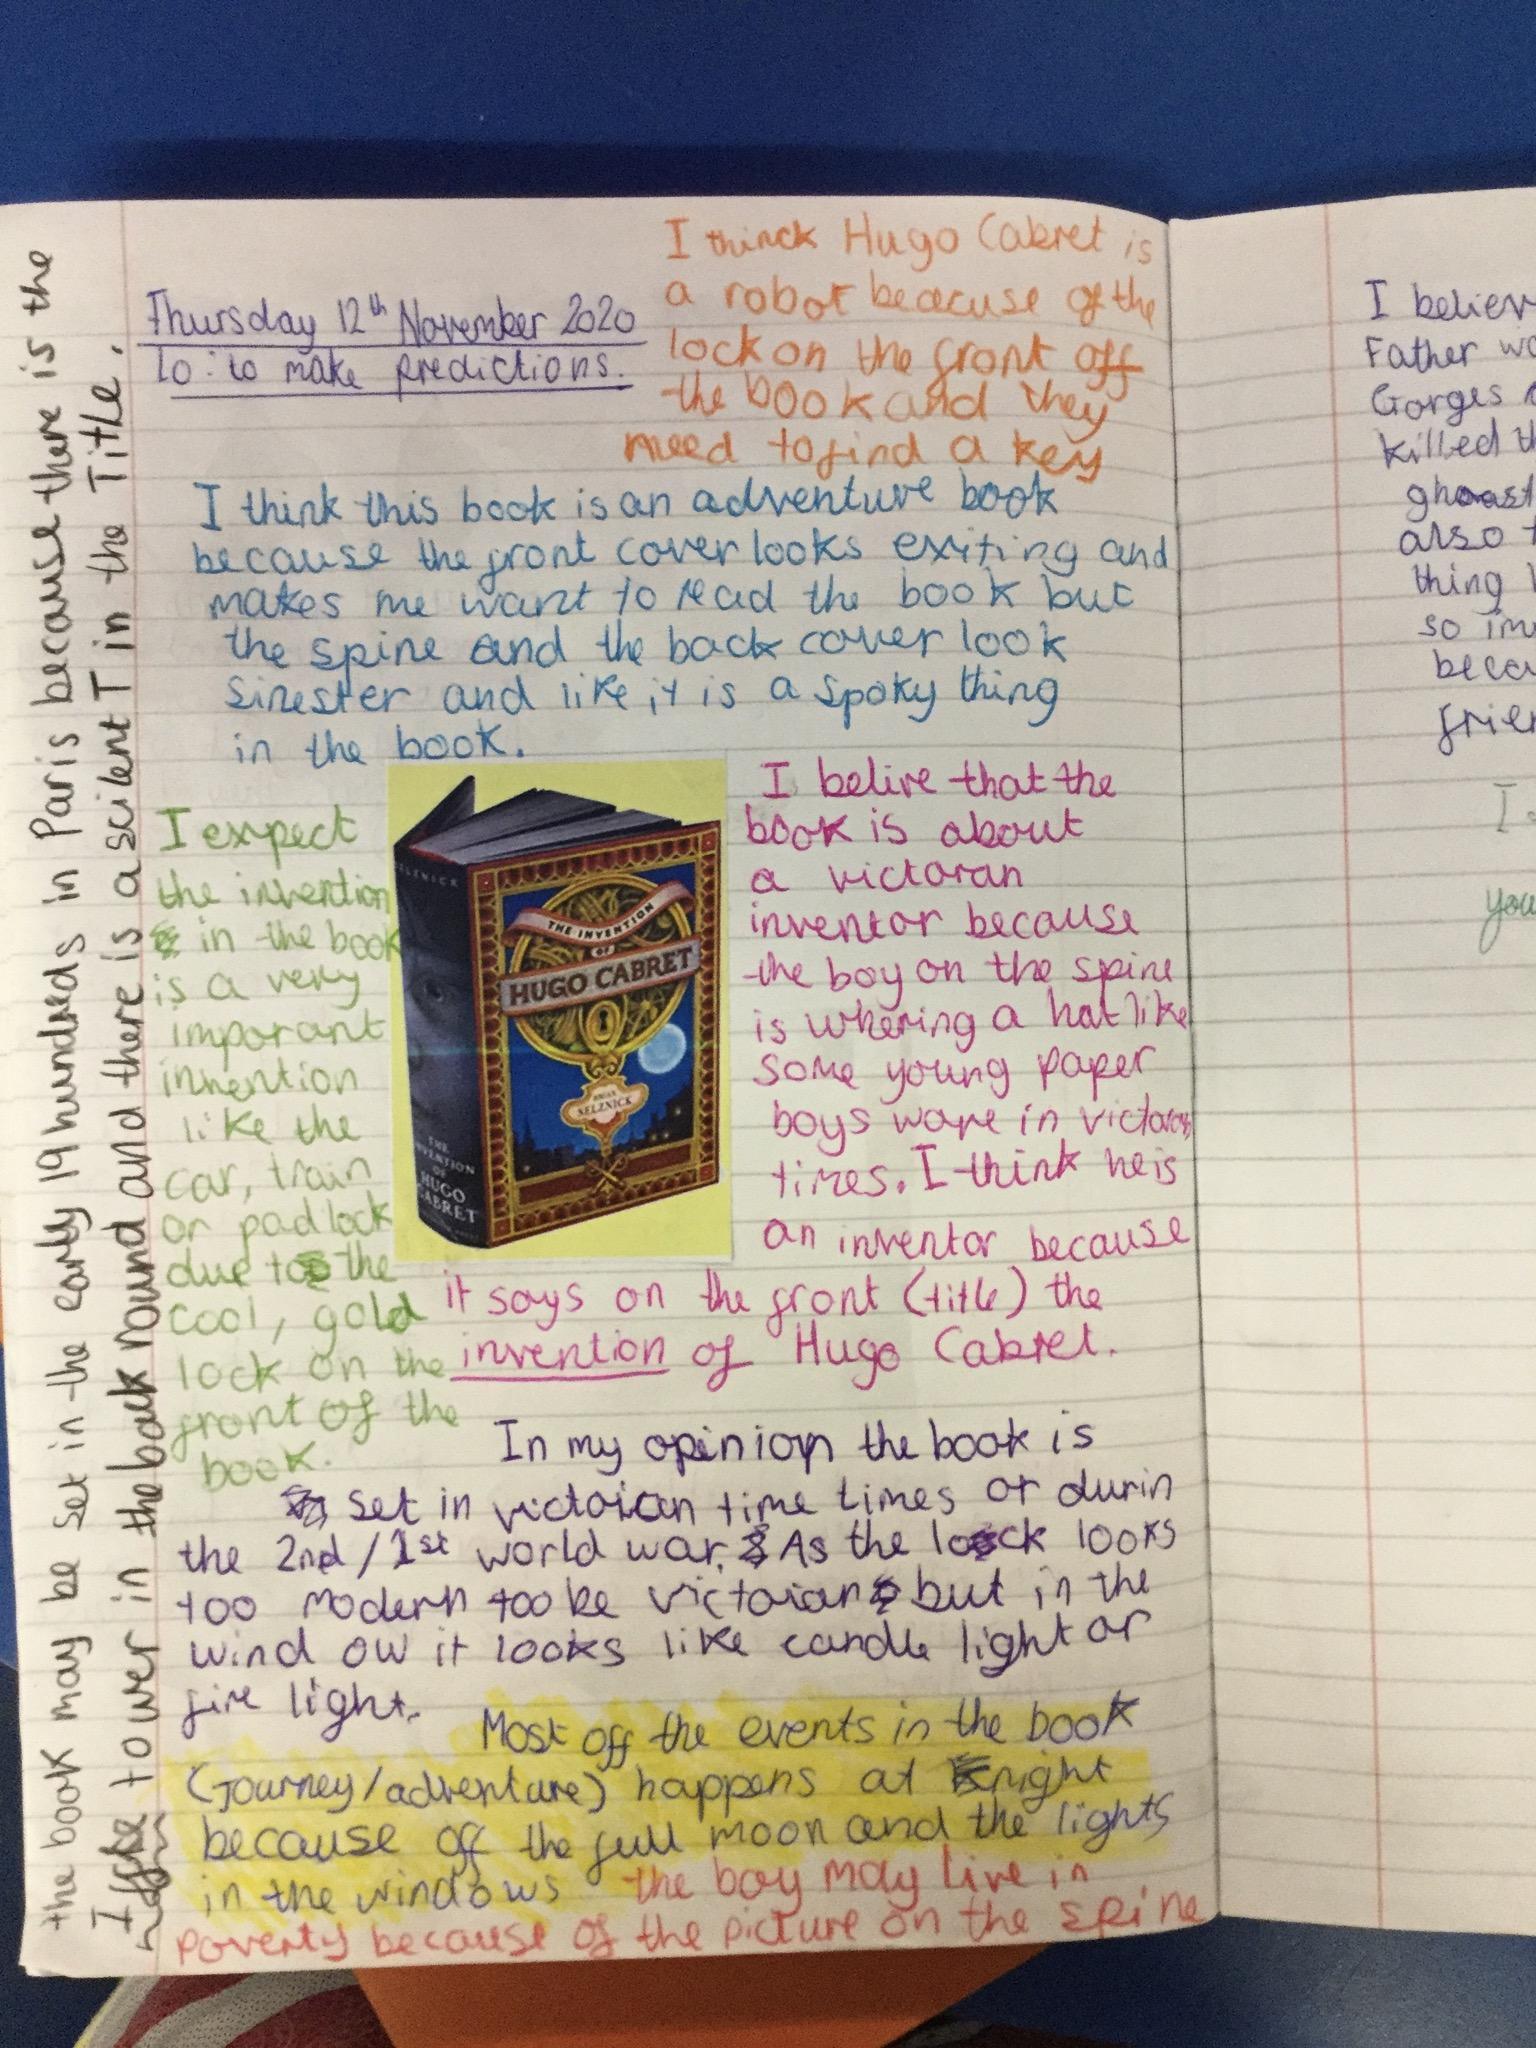 Thursday 12th November 2020
Lo: to make predictions.
I thinck Hugo Cabret is
a robot beacuse of the
lock on the front off
the book and they
need to find a key
I think this book is an adventure book
because the front cover looks exiting and
makes me want to read the book but
the spine and the back cover look
sinester and like it is a spoky thing
in the book.
I expect
the invention
in the book
is a very
imporant
invention
like the
car, train
or padlock
due to the
cool, gold
lock on the
front of the
book.
SELZNICK
THE
INVENTION
OF
HUGO
CABRET
THE INVENTION
OF
HUGO CABRET
BRIAN
SELZNICK
I belive that the
book is about
a victoran
inventor because
the boy on the spine
is whering a hat like
some young paper
boys ware in victoran
times. I think he is
an inventor because
it says on the front (title) the
invention of Hugo Cabret.
In my opinion the book is
set in victoian time times or durin
the 2nd/1st world war. As the lock looks
too modern too be victoian but in the
wind ow it looks like candle light or
fire light.
Most off the events in the book
(Journey/adventure) happens at night
because off the full moon and the lights
in the windows
the boy may live in
poverty because of the picture on the spine
the book may be set in the early 19 hundreds in Paris because there is the
tower in the back round and there is a scilent T in the Title.
I believ
Father wo
Gorges
killed th
ghoast
also t
thing
so im
beca
frien
I
you